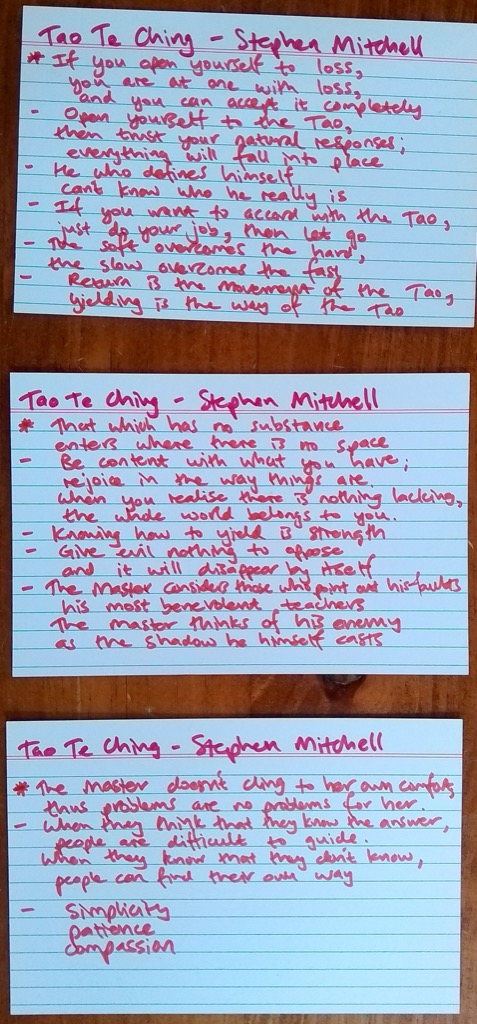 Tao Te Ching - Stephen Mitchell
* If you open yourself to loss,
you are at one with loss,
and you can accept it completely
- Open yourself to the Tao,
then trust your natural responses;
everything will fall into place
- He who defines himself
can't know who he really is
- If you want to accord with the Tao,
just do your job, then let go
- The soft overcomes the hard,
the slow overcomes the fast
- Return is the movement of the Tao,
yielding is the way of the Tao
Tao Te Ching - Stephen Mitchell
* That which has no substance
enters where there is no space
- Be content with what you have;
rejoice in the way things are.
When you realise there is nothing lacking,
the whole world belongs to you.
- Knowing how to yield is strength
- Give evil nothing to oppose
and it will disappear by itself
- The Master considers those who point out his faults
his most benevolent teachers
The master thinks of his enemy
as the shadow he himself casts
Tao Te Ching - Stephen Mitchell
* The Master doesn't cling to her own comfort,
thus problems are no problems for her.
- When they think that they know the answer,
people are difficult to guide.
When they know that they don't know,
people can find their own way
- Simplicity
patience
compassion